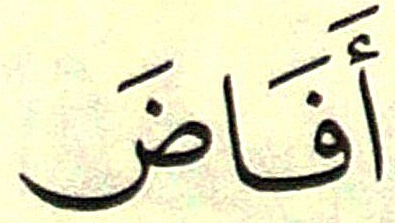 أَفَاضَ